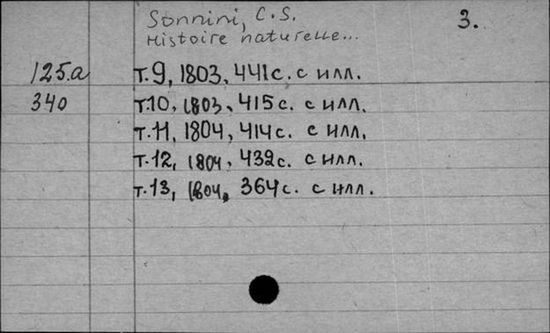 Sonnini, C.S. 3.
Histoire naturelle...
125.a т.9, 1803, 441с. с илл.
340 т.10, 1803, 415с. с илл.
т.11, 1804, 414с. с илл.
т.12, 1804, 432с. с илл.
т.13, 1804, 364с. с илл.